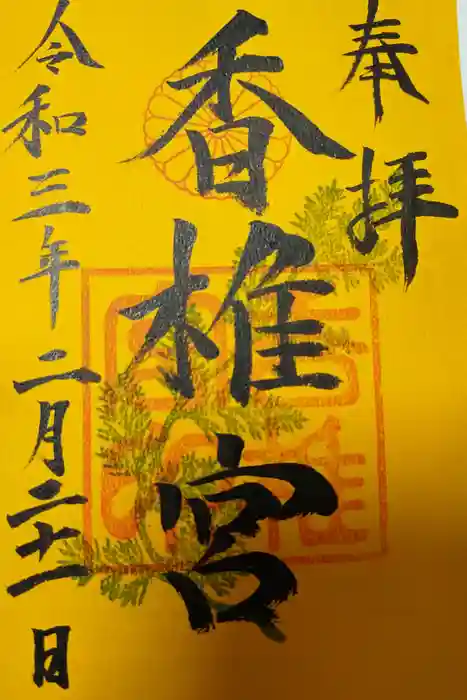 奉拝
香椎宮
令和三年二月二十一日